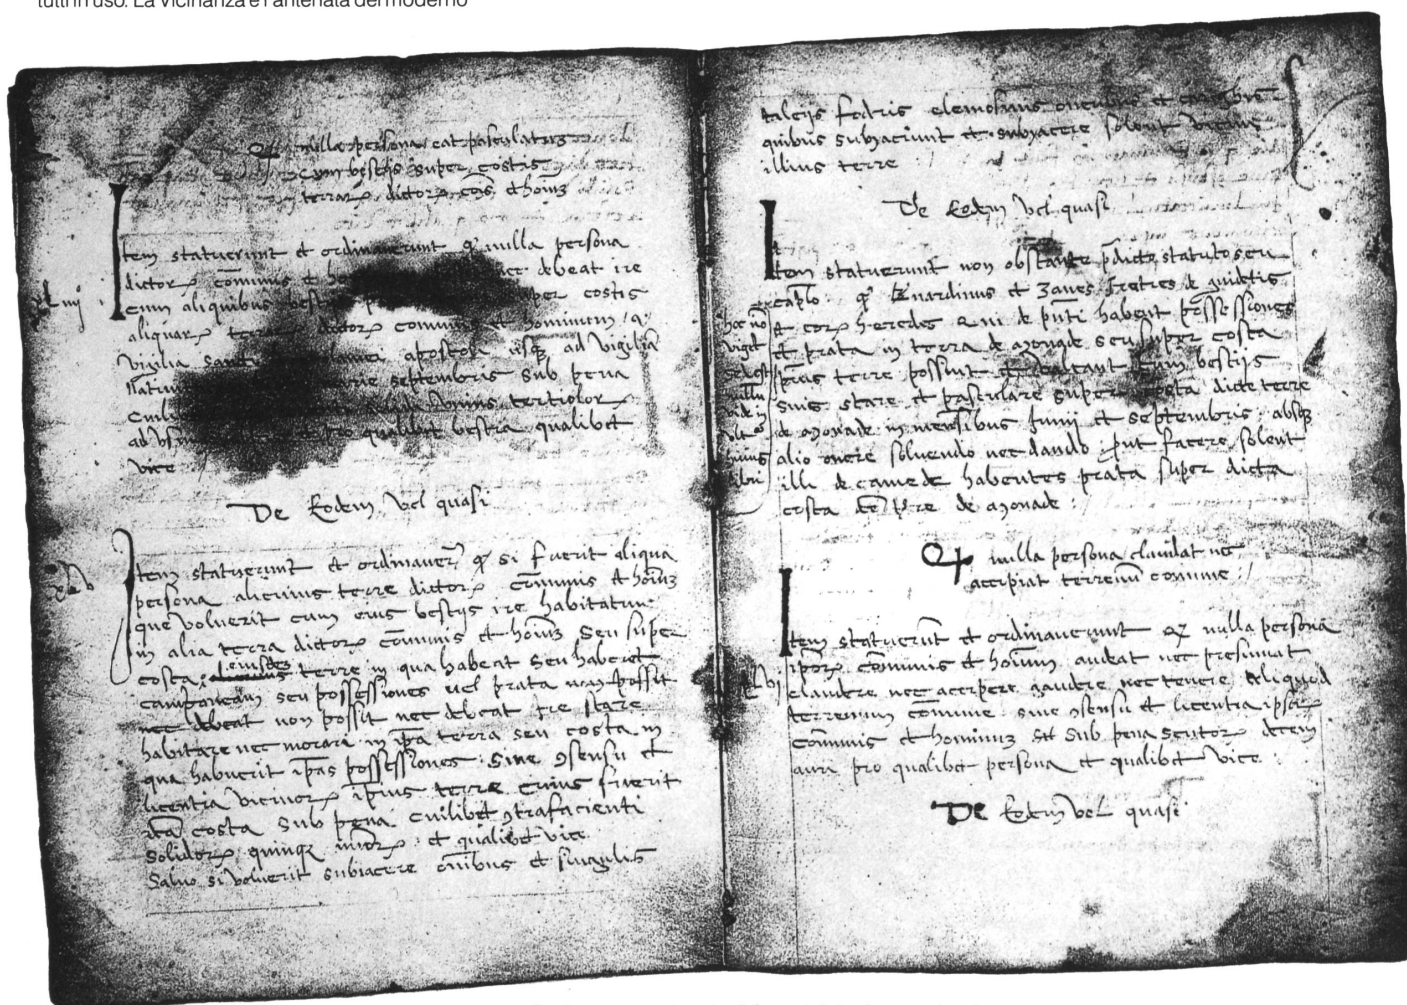 tutti in uso. La Vicinanza è l'antenata del moderno
nulla persona eat pasculatum
cum bestijs super costis
terrarum dictor. cõis et hom
Item statuerunt et ordinaverunt q nulla persona
dictor. cõmunis et debeat ire
cum aliquibus super costis
aliquar. dictor. communis et hominum a
vigilia apostoli usq ad vigiliam
septembris sub pena
tertiolor.
et pro qualibet bestia qualibet
vice
De Eodem vel quasi
Item statuerunt et ordinaver. q si fuerit aliqua
persona alicuius terre dictor. cõmunis et hom
que voluerit cum eius bestijs ire habitatum
in alia terra dictor. cõmunis et hom seu super
costa eiusdem terre in qua habeat seu haberet
campaneam seu possessiones vel prata non possit
nec debeat non possit nec debeat ire stare
habitare nec morari in ipa terra seu costa in
qua habuerit ipas possessiones sine 9sensu et
licentia vicinor. ipius terre cuius fuerit
costa sub pena cuilibet 9trafacienti
solidor. quinq et qualibet vice
Salvo si voluerit subiacere oneribus et singulis
taleijs fodris elemosinis oneribus et
quibus subiaciunt et subiacere solent vicini
illius terre
De Eodem vel quasi
Item statuerunt non obstante pdicto statuto seu
caplo q Bnardinus et Zanes fratres de
et eor. heredes qui de pnti habent possessiones
et prata in terra de seu super costa
terre possint et valeant cum bestijs
suis stare et pasculare super costa dicte terre
de in mensibus Junij et septembris absq
alio onere solvendo nec dando put facere solent
illi de habentes prata super dicta
costa de
hoc nõ
viget
sed est
nullu
vide in
ult
huius
libri
Q nulla persona claudat nec
accipiat terrenum comune
Item statuerũt et ordinaverunt q nulla persona
ipor. cõmunis et hoium audeat nec presumat
claudere nec accipere gaudere nec tenere aliquod
terrenum cõmune sine 9sensu et licentia ipor.
cõmunis et hominum et sub pena scutor. decem
auri pro qualibet persona et qualibet vice
De Eodem vel quasi